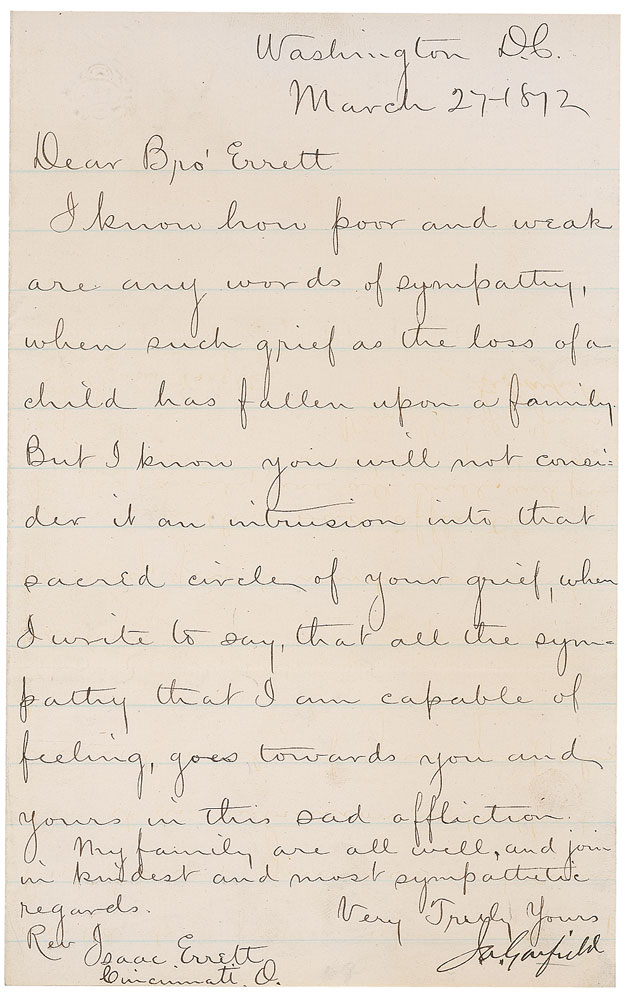 Washington D.C.
March 27-1872
Dear Bro' Errett
I know how poor and weak
are any words of sympathy,
when such grief as the loss of a
child has fallen upon a family.
But I know you will not consi=
der it an intrusion into that
sacred circle of your grief, when
I write to say, that all the sym=
pathy that I am capable of
feeling, goes towards you and
yours in this sad affliction.
My family are all well, and join
in kindest and most sympathetic
regards.
Very Truly Yours
J.A. Garfield
Rev Isaac Errett
Cincinnati. O.